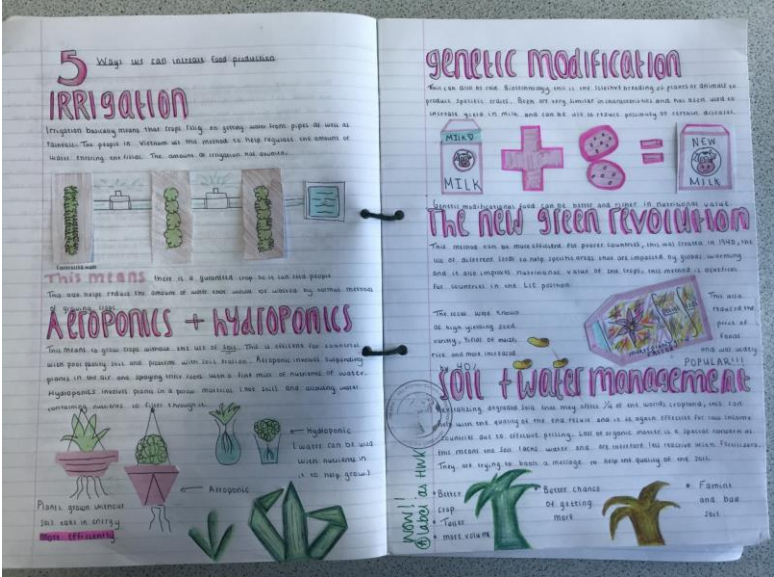 5 Ways we can increase food production
IRRIGATION
Irrigation basically means that crops relay on getting water from pipes as well as
rainfall. The people in Vietnam use this method to help regulate the amount of
water entering the field. The amount of irrigation has
This means there is a guaranteed crop so it can feed people
This also helps reduce the amount of water that would be wasted by normal methods
of growing
Aeroponics + hydroponics
This means to grow crops without the use of soil. This is efficient for countries
with poor quality soil and problems with soil erosion. Aeroponic involves suspending
plants in the air and spraying their roots with a fine mist of nutrients of water.
Hydroponics involves plants in a porous material (not soil) and allowing water
containing nutrients to filter through it.
Hydroponic
(water can be used
with nutrients in
it to help grow)
Aeroponic
Plants grown without
soil in energy
more efficiently
genetic modification
This can also be called Biotechnology this is the breeding of plants or animals to
product specific
increase yield in milk and can be use to reduce of certain diseases.
MILK
MILK
=
NEW
MILK
Genetic modificational food can be better and richer in nutritional value.
The new green revolution
This method can be more efficient for poorer countries, this was created in 1940, the
use of different seeds to help specific areas that are impacted by global warming
and it also improves nutritional value of the crops, this method is beneficial
for countries in the LIC position.
The seeds were known
as high yielding seed
variety. Yields of maize,
rice and more increased
by 40%
This also
reduced the
price of
foods
and was widely
POPULAR!!!
Soil + water management
degraded soil that may affect of the worlds cropland, this can
help with the quality of the and it is again effective for low income
countries due to efficient pricing. Loss of organic matter is a special concern as
this means the soil lacks water and are therefore less reactive with fertilizers.
They are trying to a message to help the quality of the soil.
WOW!!
label as HWK
• Better
crop
•
• more volume
• Better chance
of getting
more
• Famine
and bad
soil